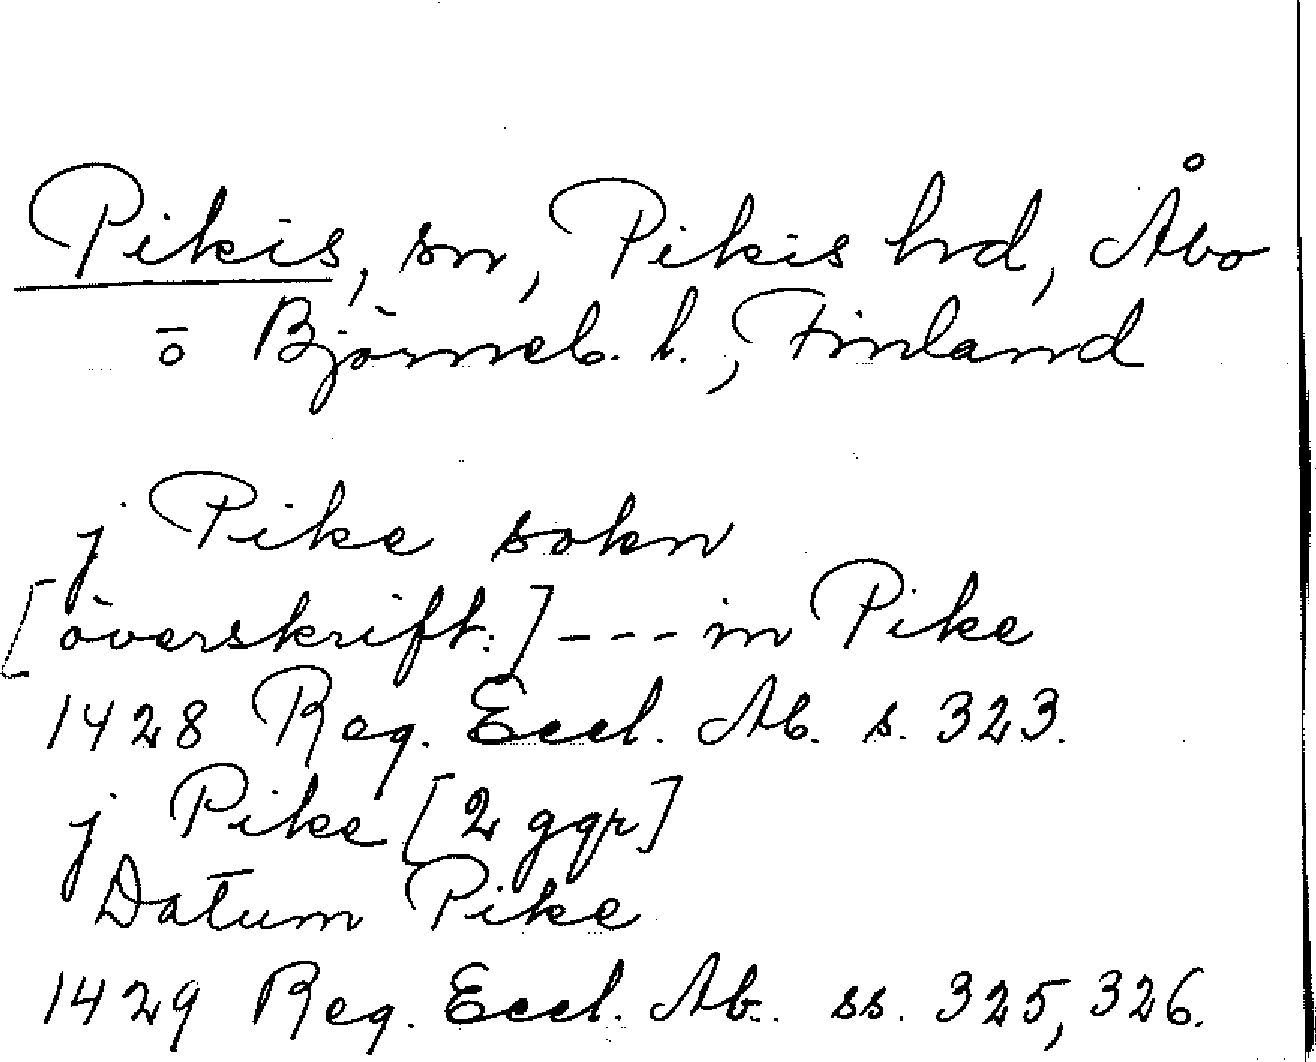 Pikis, sn, Pikis hd, Åbo
o Björneb. l., Finland
j Pike sokn
[överskrift:] --- in Pike
1428 Reg. Eccl. Ab. s. 323.
j Pike [2 ggr]
Datum Pike
1429 Reg. Eccl. Ab. ss. 325, 326.